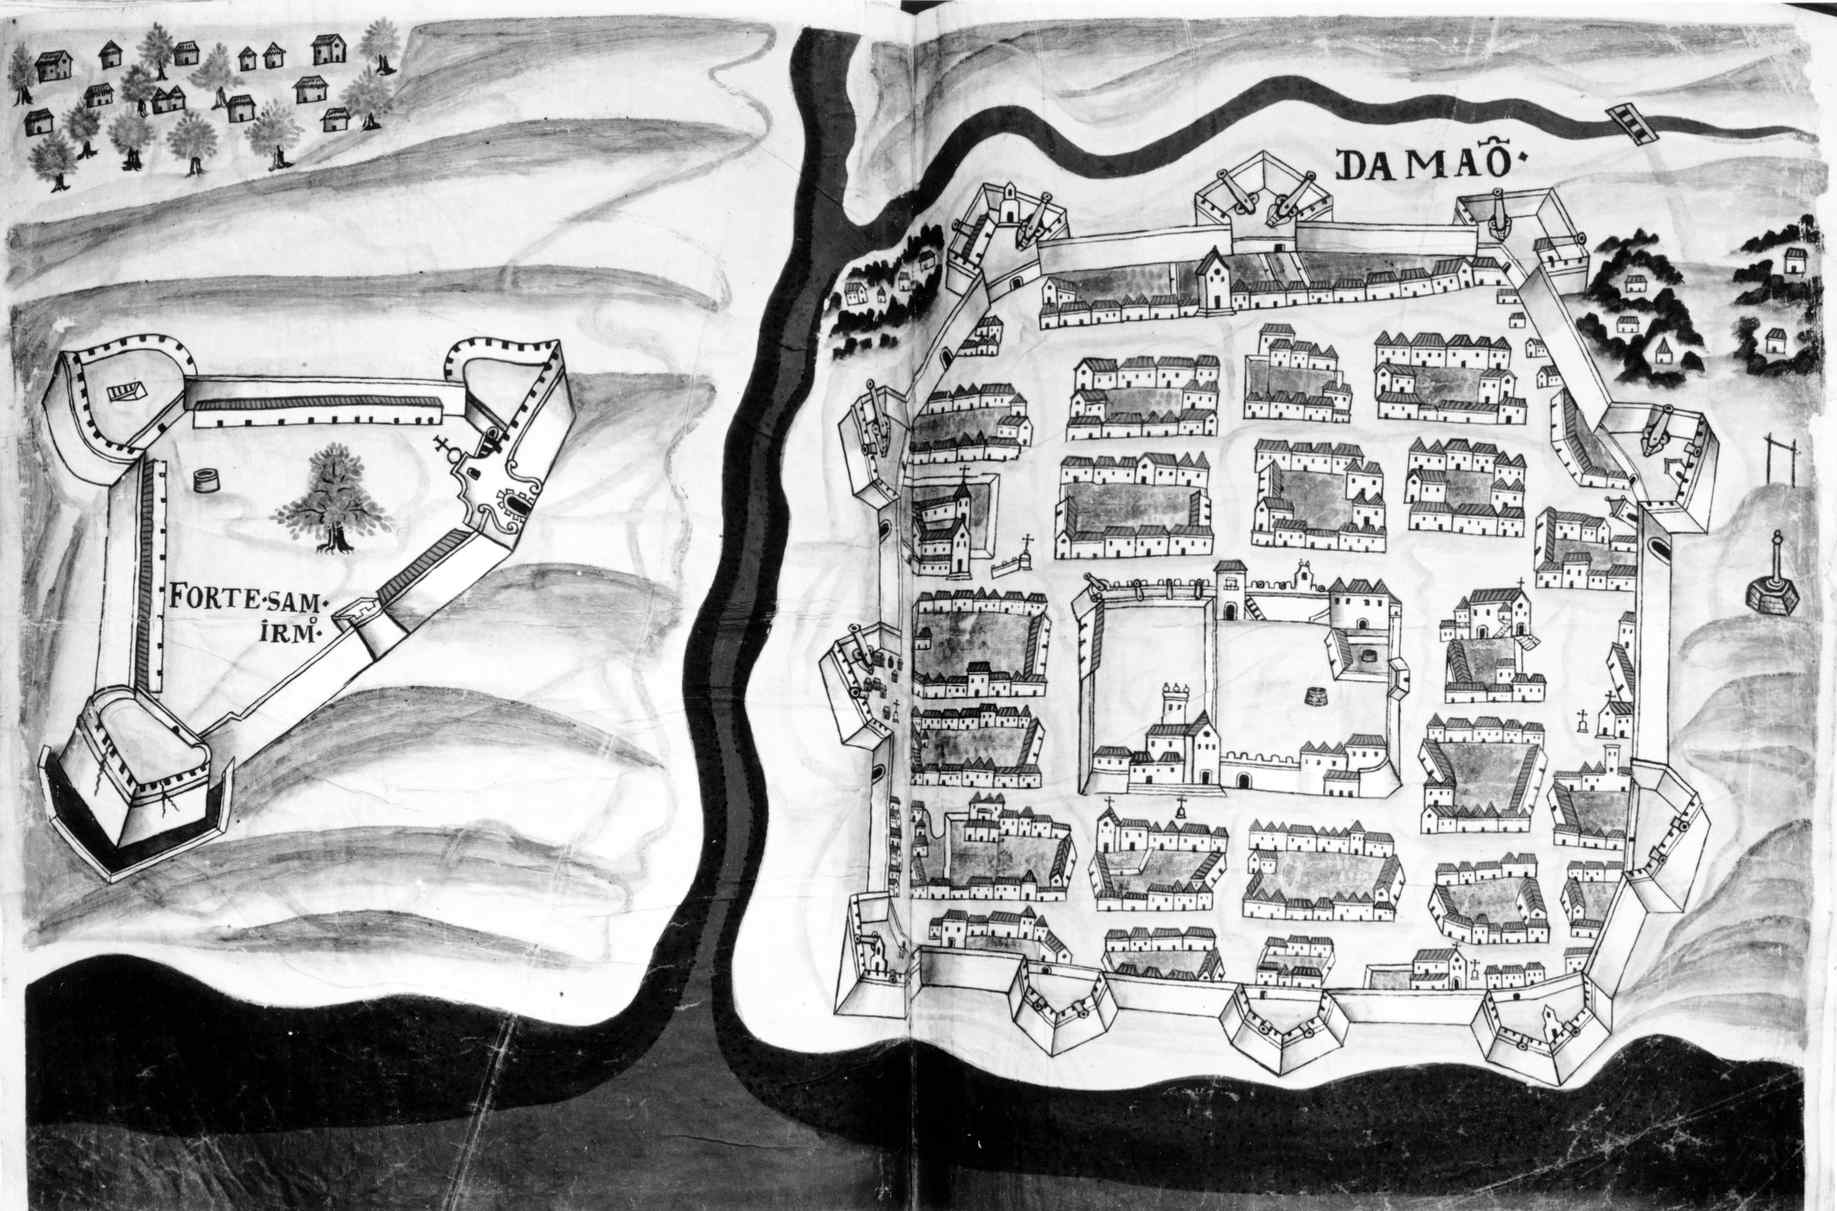 DAMAÕ·
FORTE·SAM·
IRM̊·